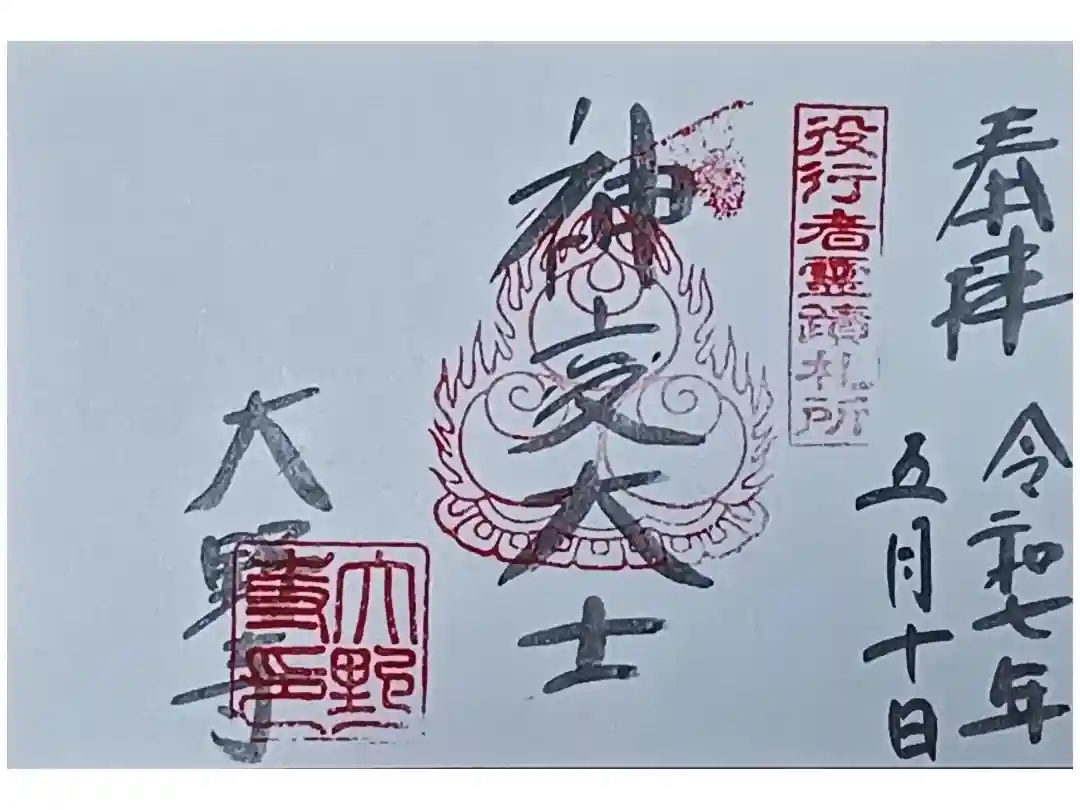 奉拝 令和七年
五月十日
役行者靈蹟札所
神変大士
大野寺
大野
寺印